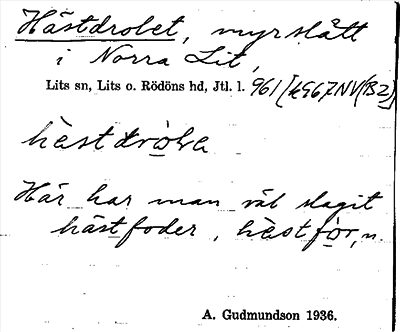 Hästdrobet, myrslått
i Norra Lit,
Lits sn, Lits o. Rödöns hd, Jtl. l. 961
hästdròba
Här har man väl slagit
hästfoder, hästfór, n.
A. Gudmundson 1936.